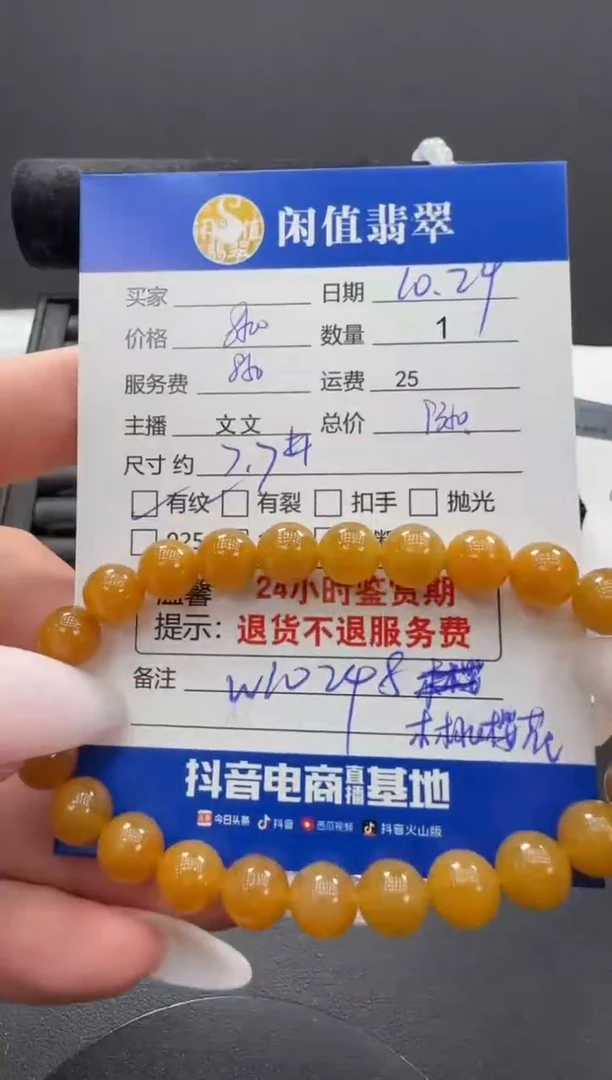 闲值翡翠
买家 日期 10.24
价格 数量 1
服务费 运费 25
主播 文文 总价
尺寸 约 7.7#
有纹 有裂 扣手 抛光
925
温馨 24小时鉴赏期
提示: 退货不退服务费
备注 W10248
桃樱花
抖音电商直播基地
今日头条 抖音 西瓜视频 抖音火山版